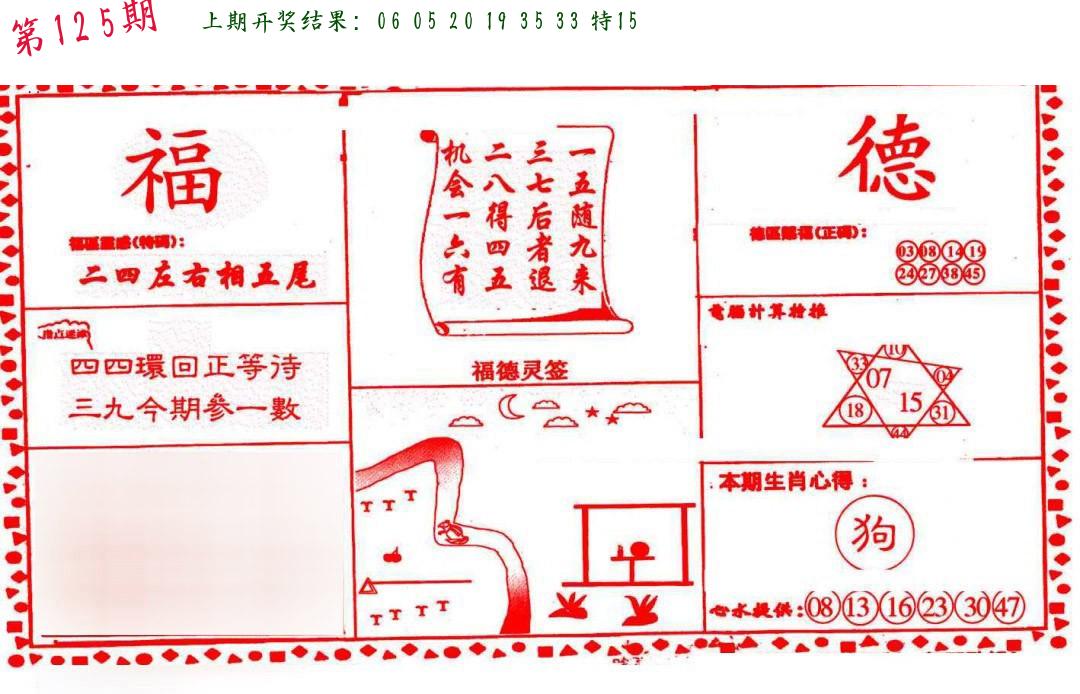 第125期
上期开奖结果：06 05 20 19 35 33 特15
福
福區靈感(特碼)：
二四左右相五尾
四四環回正等待
三九今期參一數
一五随九来
三七后者退
二八得四五
机会一六有
福德灵签
德
德區賜福(正碼)：
03 08 14 19
24 27 38 45
電腦計算特推
10
33 07 04
18 15 31
44
本期生肖心得：
狗
心水提供：08 13 16 23 30 47